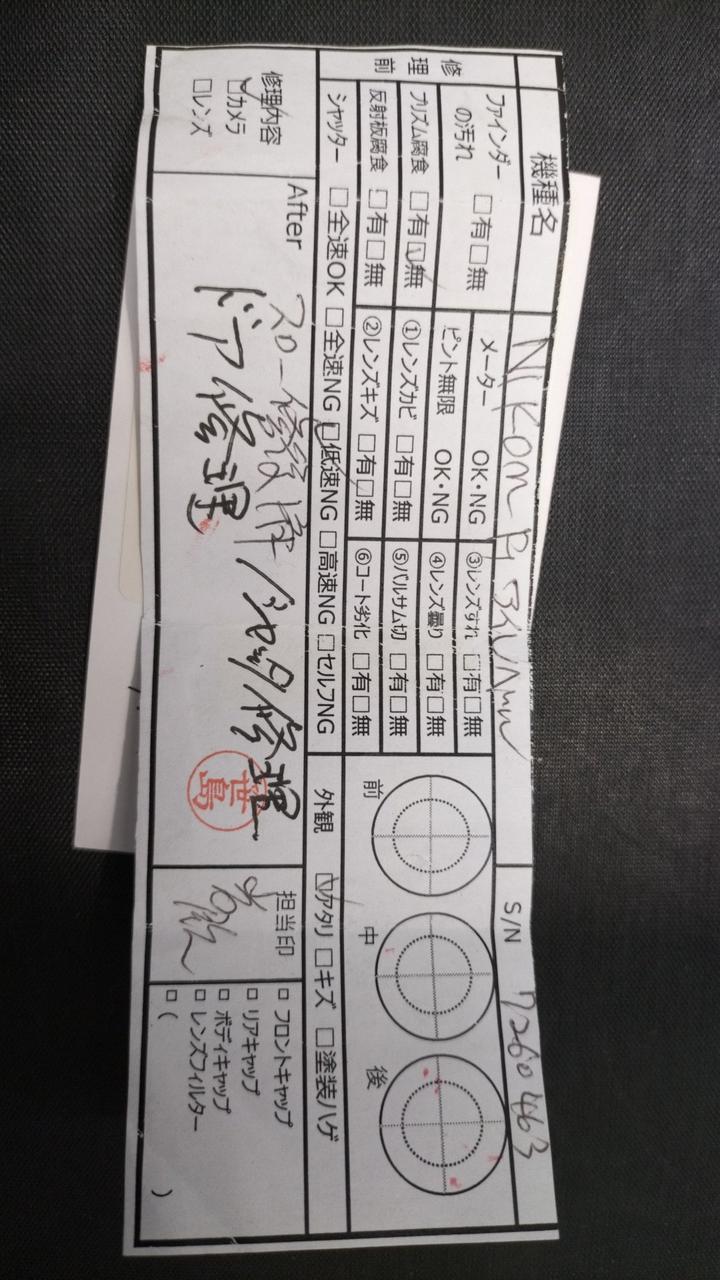 機種名 Nikon F
S/N 7260463
修理前
ファインダーの汚れ □有□無
メーター OK・NG
③レンズすれ □有□無
プリズム腐食 □有□無
ピント無限 OK・NG
④レンズ曇り □有□無
反射板腐食 □有□無
①レンズカビ □有□無
⑤バルサム切 □有□無
②レンズキズ □有□無
⑥コート劣化 □有□無
前 中 後
シャッター □全速OK □全速NG □低速NG □高速NG □セルフNG
外観 □アタリ □キズ □塗装ハゲ
修理内容
□カメラ
□レンズ
After
スロー修 修理
ドア修理
担当印
□フロントキャップ
□リアキャップ
□ボディキャップ
□レンズフィルター
□( )